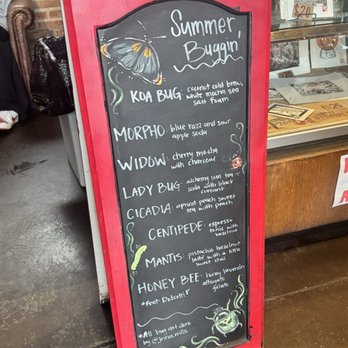 $20
Summer
Buggin'
KOA BUG: coconut cold brew,
white mocha sea
salt foam
MORPHO: blue razz and sour
apple soda
WIDOW: cherry mocha
with charcoal
LADY BUG: alchemy sun tea
soda with black
currant
CICADIA: apricot peach sweet
tea with peach
CENTIPEDE: espresso
tonic with
hazelnut
MANTIS: pistachio hazelnut
with a little
sweet
HONEY BEE: honey lavender
affogato
gelato
*Feat. Dolcetti*
*All bug art done